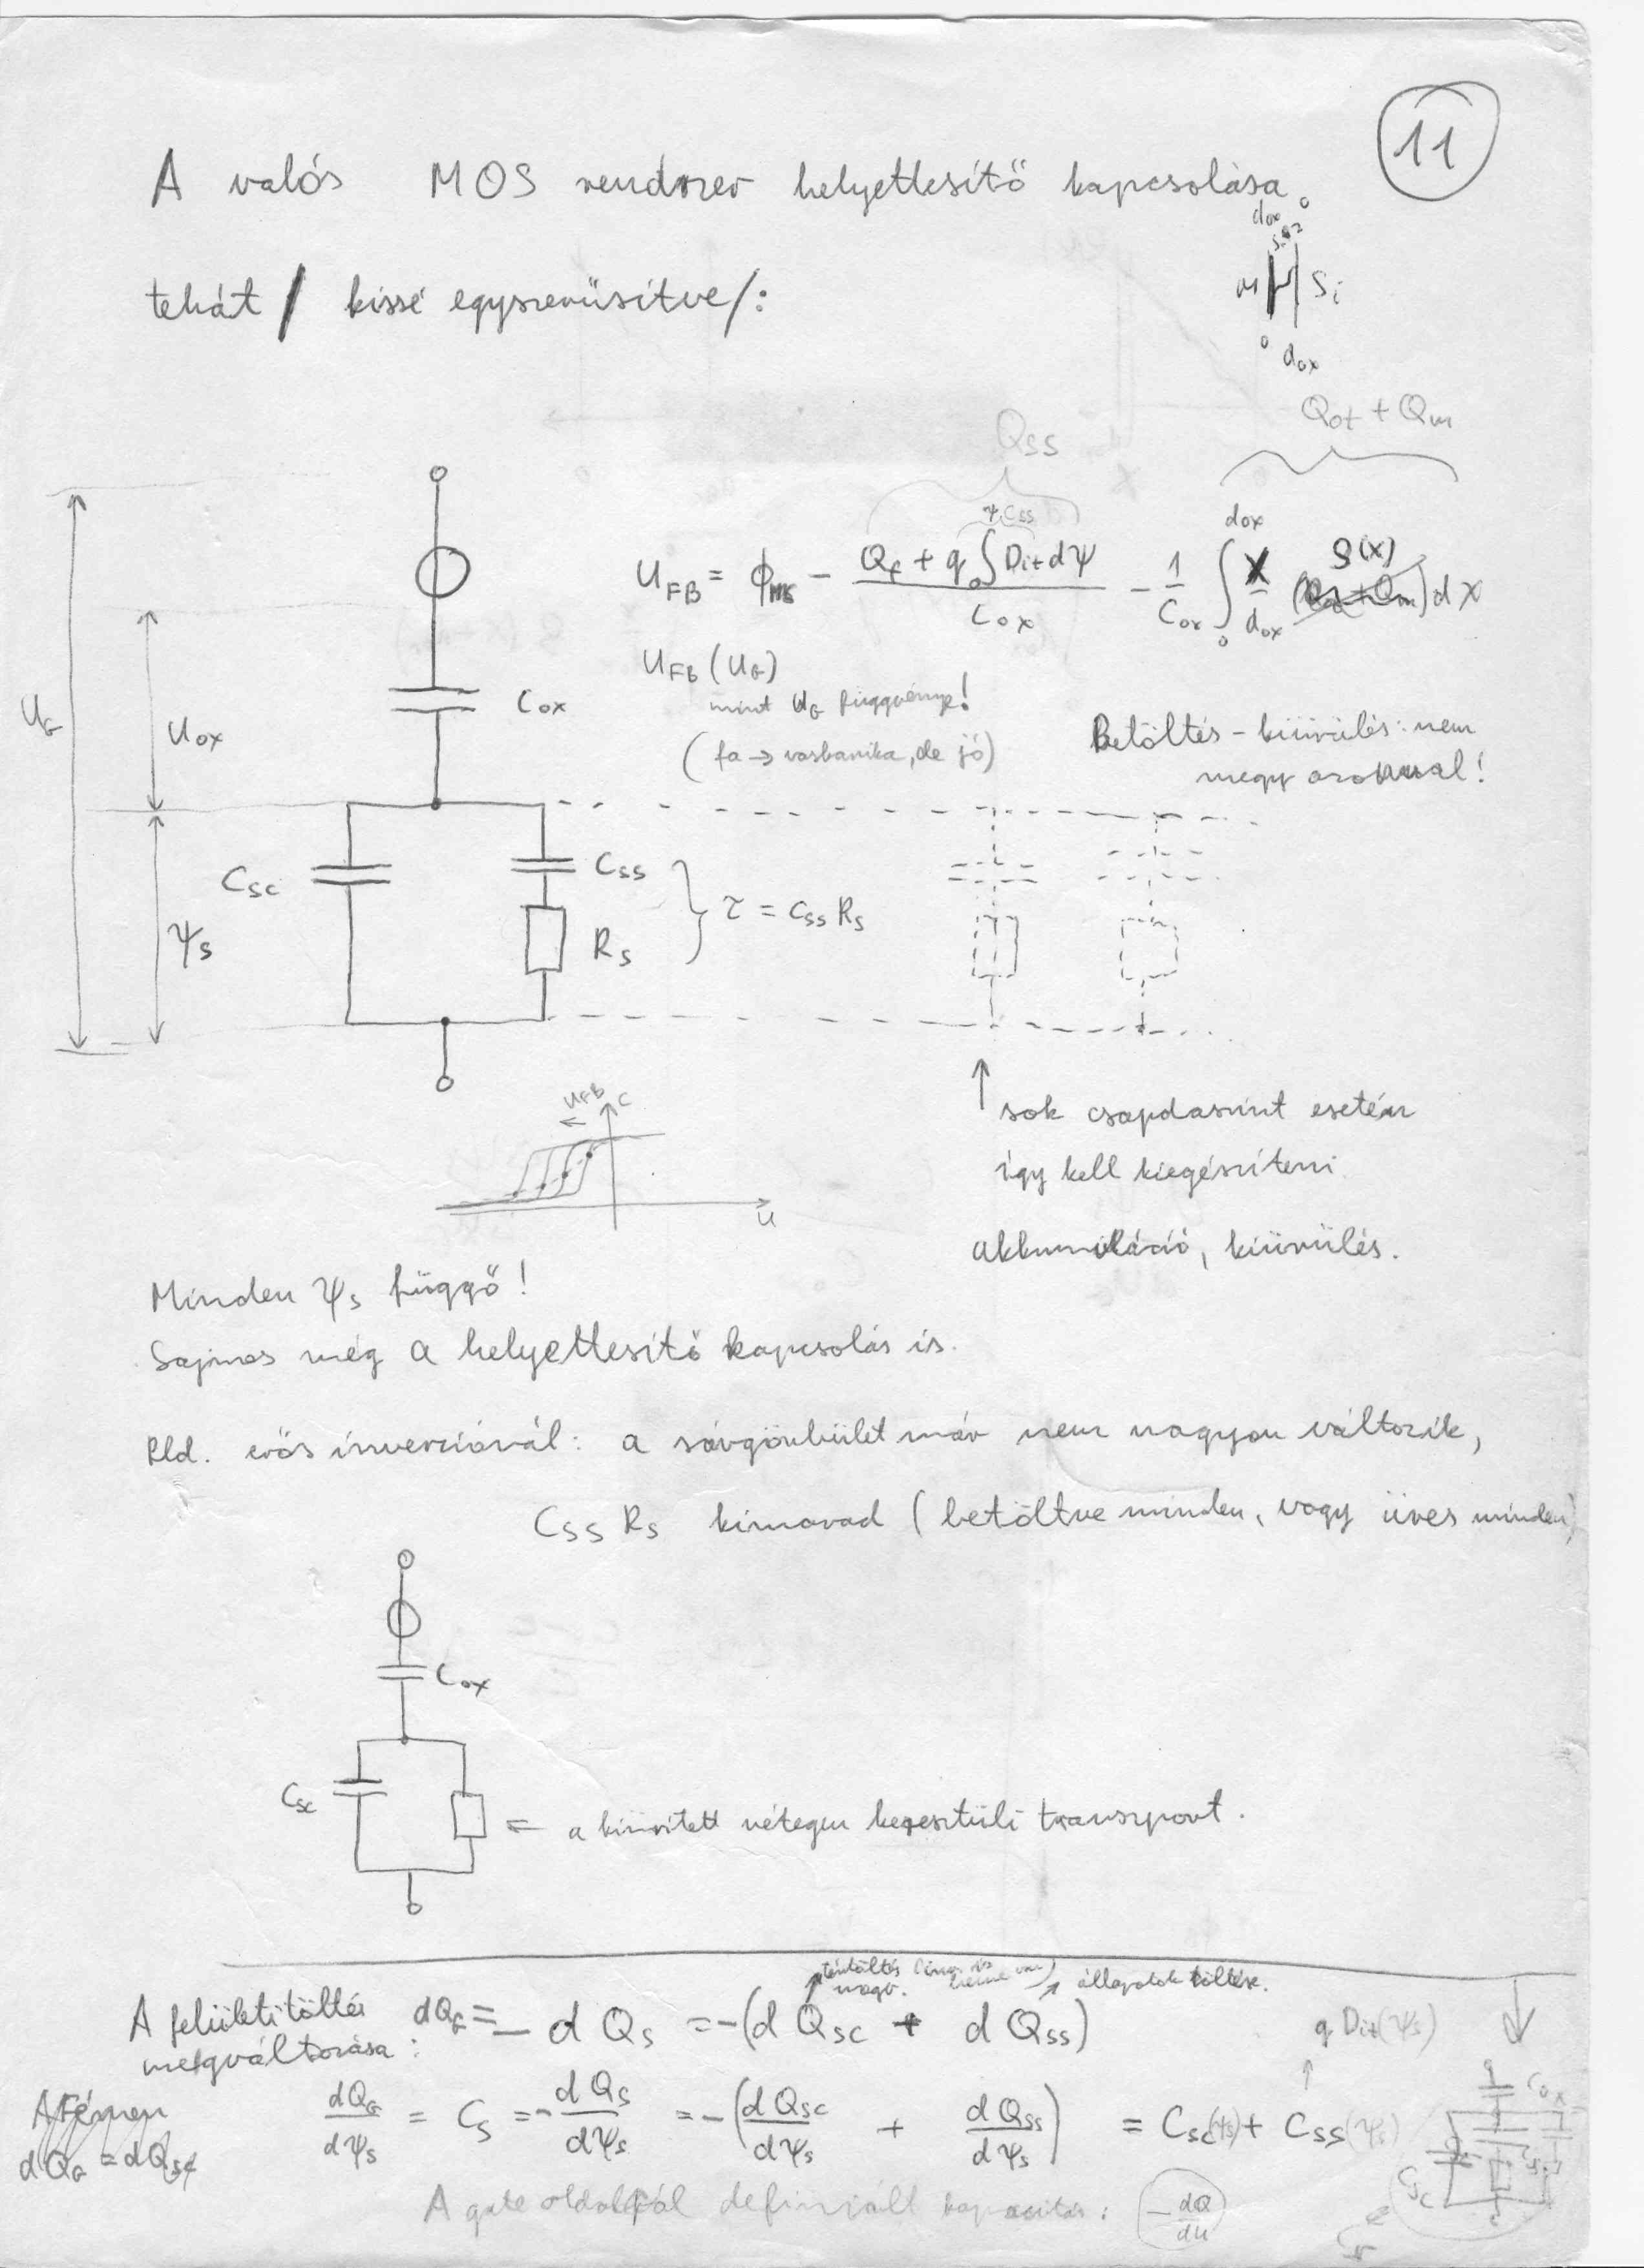 11
A valós MOS rendszer helyettesítő kapcsolása
tehát / kissé egyszerűsítve/:
dox 0
SiO2
M Si
0 dox
Qss
Qot + Qm
ψ Css
U_FB = ϕ_MS − (Q_f + q ∫₀ D_it dψ) / C_ox − 1/C_ox ∫₀^dox x/dox ρ(x) dx
U_FB (U_G)
mint U_G függvénye!
(fa → vasbanika, de jó)
Betöltés – kiürülés: nem
megy azonnal!
U_G
U_ox
C_ox
ψ_s
C_sc
C_ss
R_s
τ = C_ss R_s
U_FB
C
U
sok csapdaszint esetén
így kell kiegészíteni
akkumuláció, kiürülés.
Minden ψ_s függő!
Sajnos még a helyettesítő kapcsolás is.
Pld. erős inverziónál: a sávgörbület már nem nagyon változik,
C_ss R_s kimarad (betöltve minden, vagy üres minden)
C_ox
C_sc
= a kiürített rétegen keresztüli transzport.
tértöltés
állapotok töltése.
A felületi töltés
megváltozása:
dQ_G = − dQ_s = −(dQ_sc + dQ_ss)
q D_it(ψ_s)
A Fémen
dQ_G = dQ_sc
dQ_G/dψ_s = C_s = − dQ_s/dψ_s = −(dQ_sc/dψ_s + dQ_ss/dψ_s) = C_sc(ψ_s) + C_ss(ψ_s)
C_ox
C_sc
A gate oldaláról definiált kapacitás: − dQ/dU